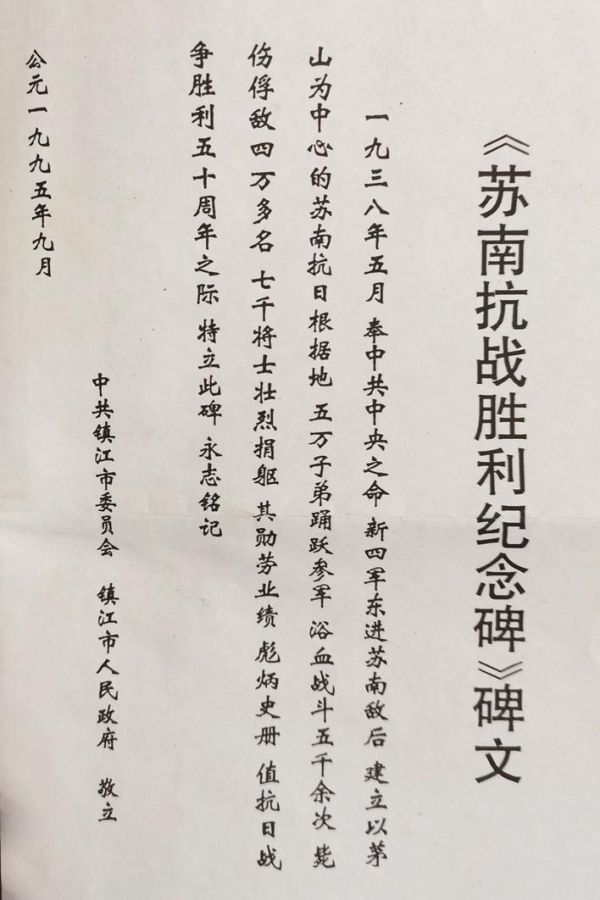 《苏南抗战胜利纪念碑》碑文
一九三八年五月 奉中共中央之命 新四军东进苏南敌后 建立以茅
山为中心的苏南抗日根据地 五万子弟踊跃参军 浴血战斗五千余次 毙
伤俘敌四万多名 七千将士壮烈捐躯 其勋劳业绩 彪炳史册 值抗日战
争胜利五十周年之际 特立此碑 永志铭记
中共镇江市委员会 镇江市人民政府 敬立
公元一九九五年九月